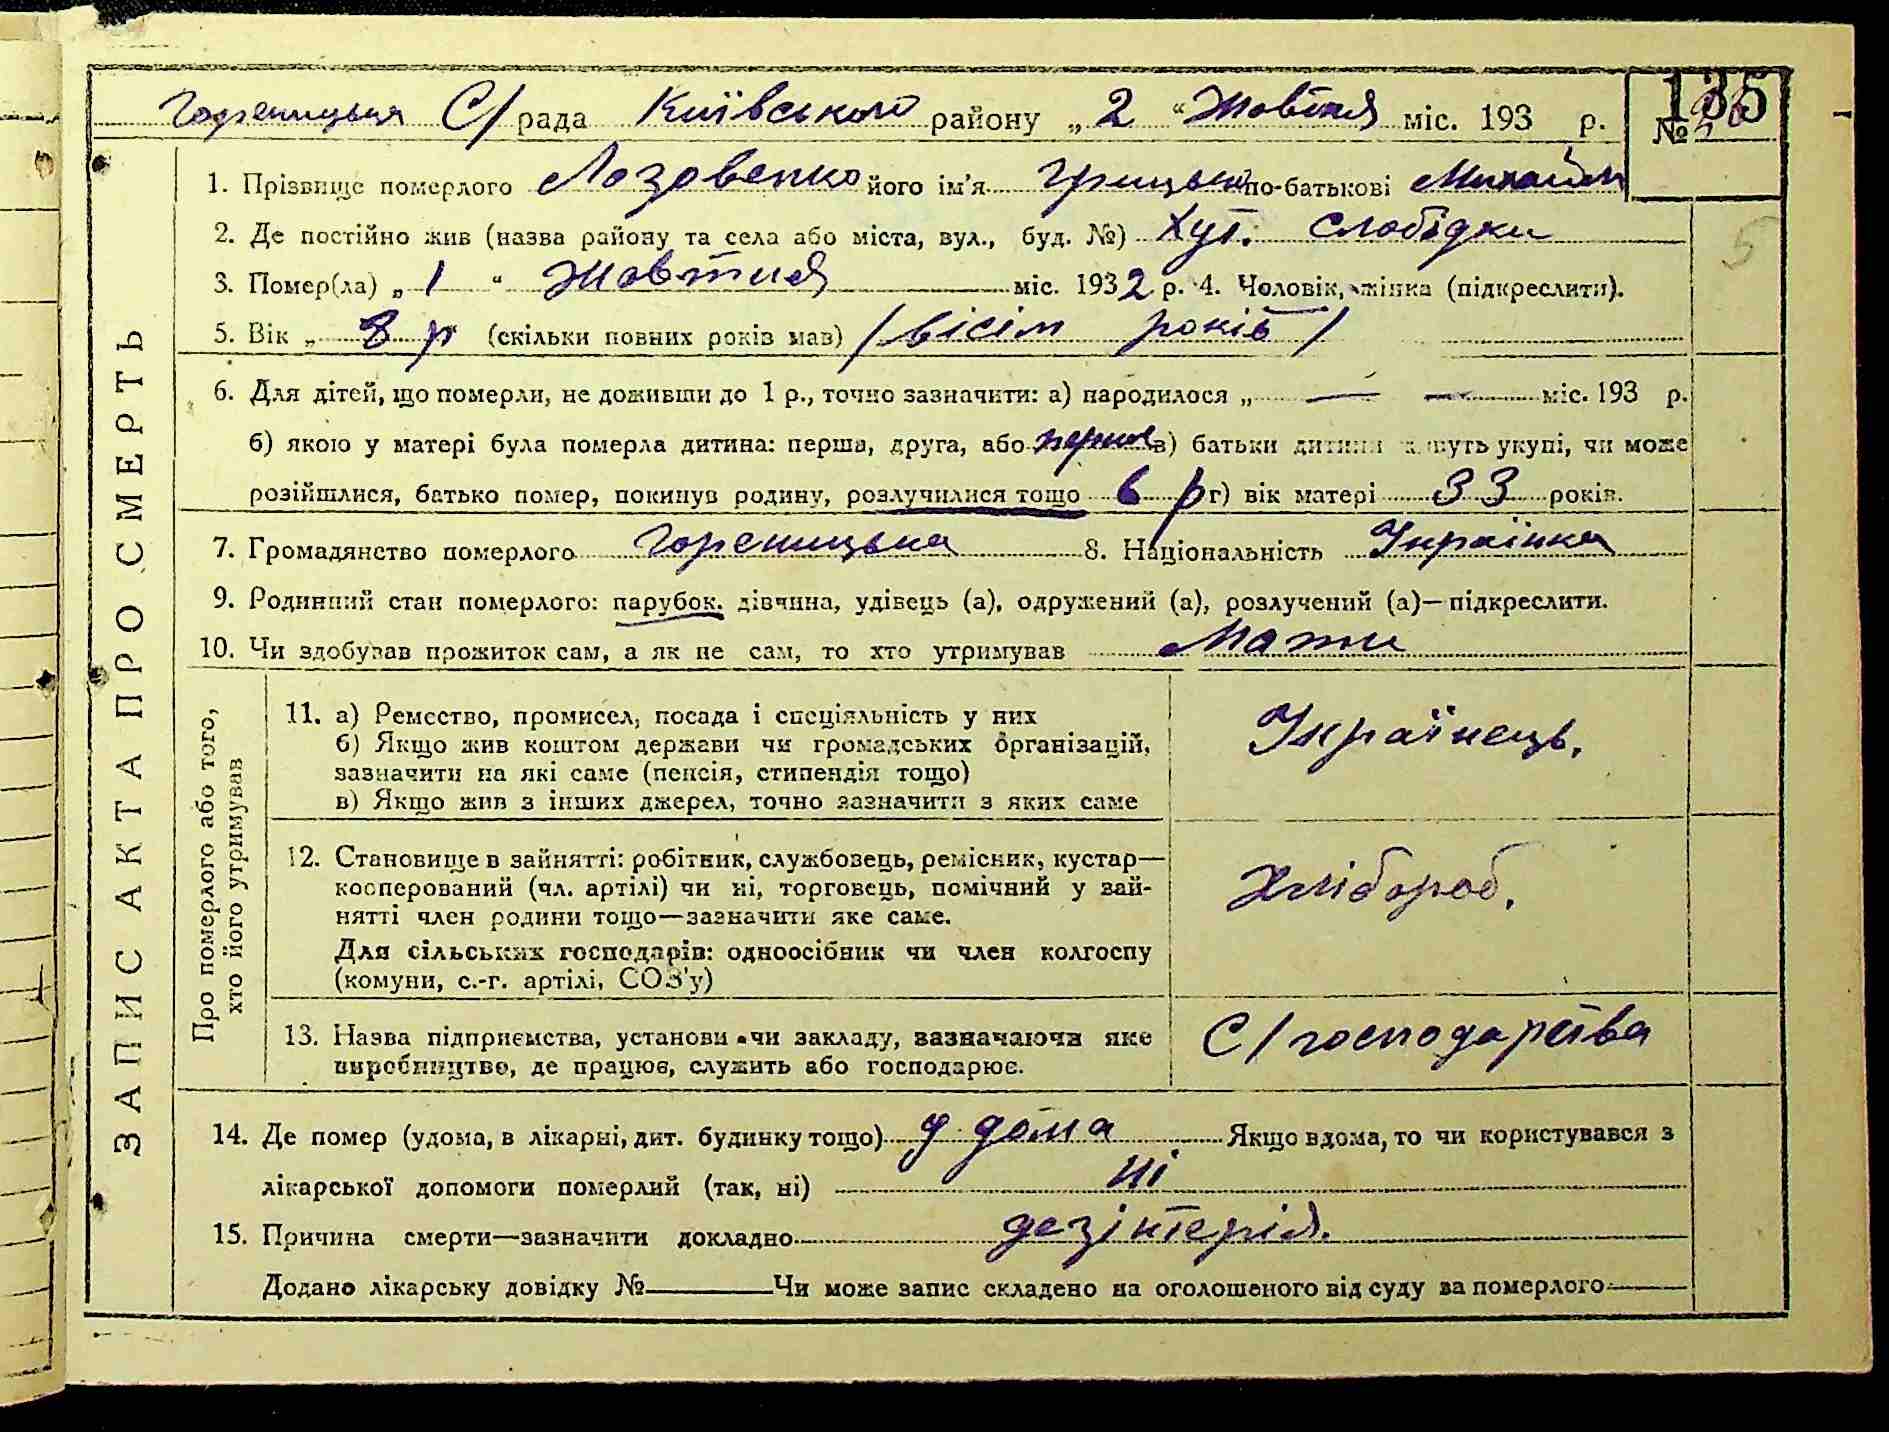 135
Гореницька С/рада Київського району „2“ Жовтня міс. 193 р. №
1. Прізвище померлого Лозовенко його ім'я Грицько по-батькові Михайл
2. Де постійно жив (назва району та села або міста, вул., буд. №) Хут. Слобідки
5
3. Помер(ла) „1“ Жовтня міс. 1932 р. 4. Чоловік, жінка (підкреслити).
5. Вік „8 р“ (скільки повних років мав) /вісім років/
6. Для дітей, що померли, не доживши до 1 р., точно зазначити: а) народилося „— — міс. 193 р.
б) якою у матері була померла дитина: перша, друга, або перша в) батьки дитини живуть укупі, чи може
розійшлися, батько помер, покинув родину, розлучилися тощо 6 р г) вік матері 33 років.
7. Громадянство померлого Гореницька 8. Національність Українка
9. Родинний стан померлого: парубок, дівчина, удівець (а), одружений (а), розлучений (а)—підкреслити.
10. Чи здобував прожиток сам, а як не сам, то хто утримував Мати
ЗАПИС АКТА ПРО СМЕРТЬ
Про померлого або того,
хто його утримував
11. а) Ремество, промисел, посада і спеціяльність у них
б) Якщо жив коштом держави чи громадських організацій,
зазначити на які саме (пенсія, стипендія тощо)
в) Якщо жив з інших джерел, точно зазначити з яких саме
Українець.
12. Становище в зайнятті: робітник, службовець, ремісник, кустар—
кооперований (чл. артілі) чи ні, торговець, помічний у зай-
нятті член родини тощо—зазначити яке саме.
Для сільських господарів: одноосібник чи член колгоспу
(комуни, с.-г. артілі, СОЗ'у)
Хлібороб.
13. Назва підприємства, установи чи закладу, зазначаючи яке
виробництво, де працює, служить або господарює.
С/господарства
14. Де помер (удома, в лікарні, дит. будинку тощо) у дома Якщо вдома, то чи користувався з
лікарської допомоги померлий (так, ні) ні
15. Причина смерти—зазначити докладно дезінтерія.
Додано лікарську довідку № Чи може запис складено на оголошеного від суду за померлого